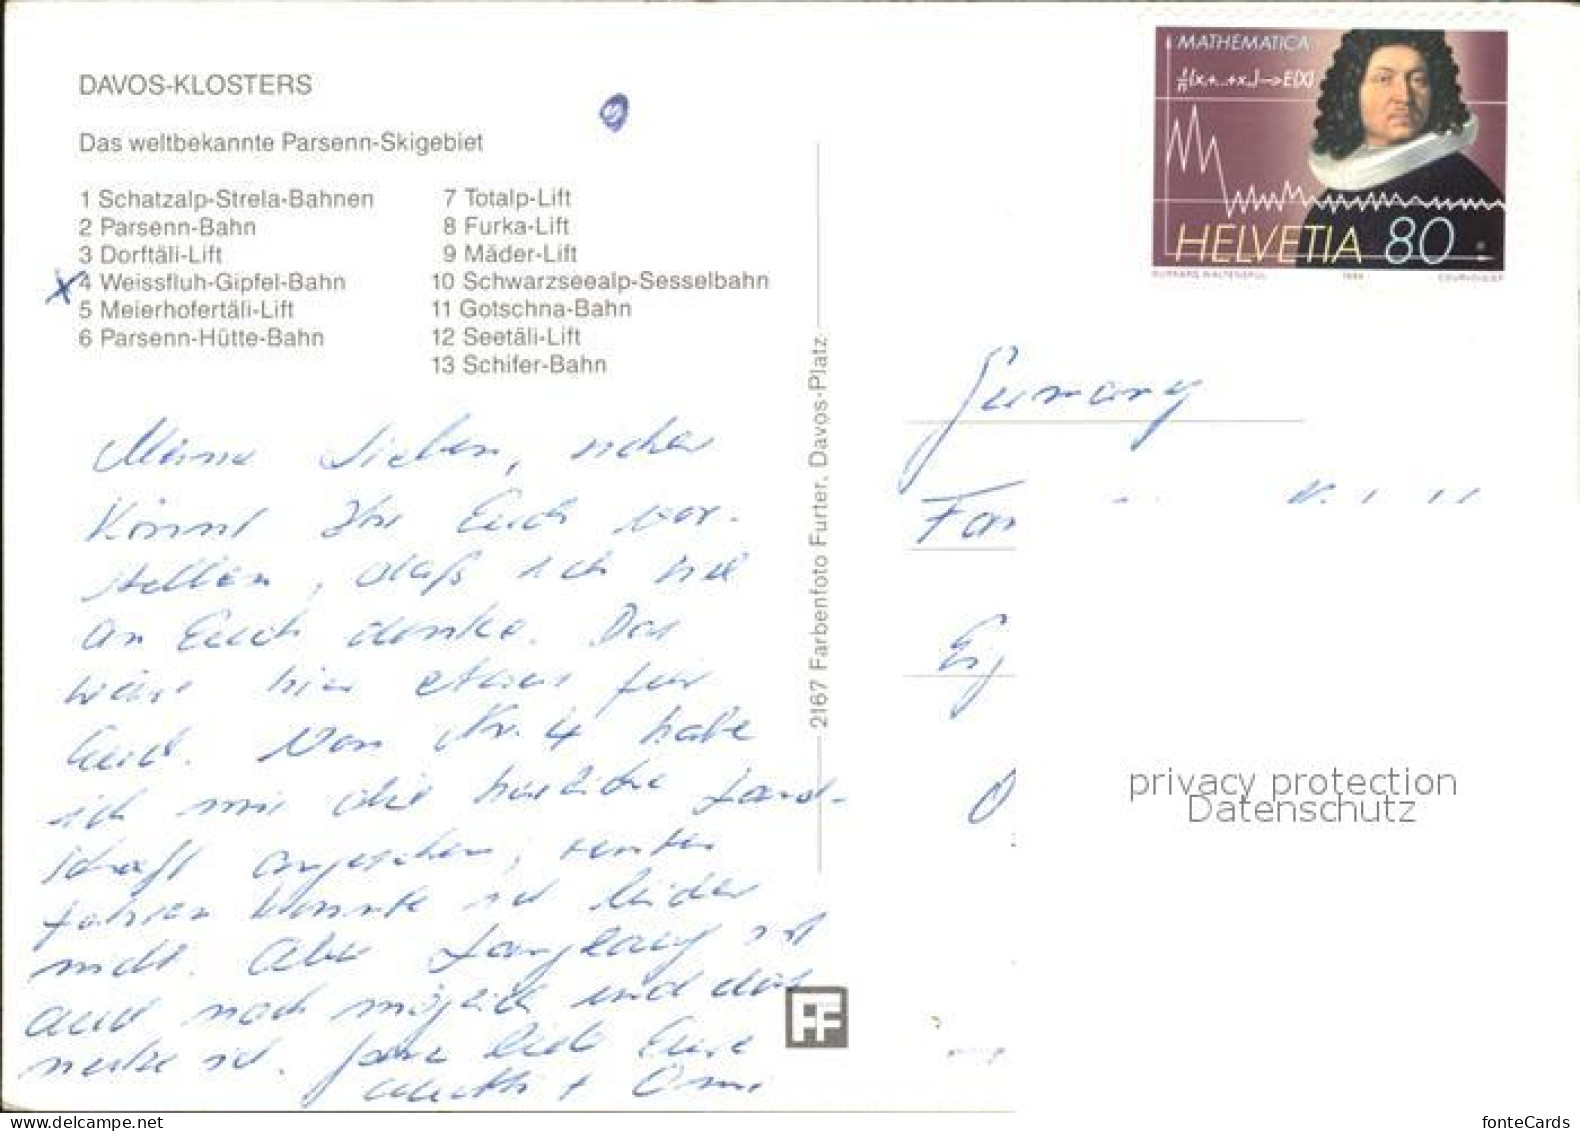 DAVOS-KLOSTERS
Das weltbekannte Parsenn-Skigebiet
1 Schatzalp-Strela-Bahnen
2 Parsenn-Bahn
3 Dorftäli-Lift
x 4 Weissfluh-Gipfel-Bahn
5 Meierhofertäli-Lift
6 Parsenn-Hütte-Bahn
7 Totalp-Lift
8 Furka-Lift
9 Mäder-Lift
10 Schwarzseealp-Sesselbahn
11 Gotschna-Bahn
12 Seetäli-Lift
13 Schifer-Bahn
Meine Lieben, sicher
könnt Ihr Euch vor-
stellen, daß ich viel
an Euch denke. Das
wäre hier etwas für
Euch. Von Nr. 4 habe
ich mir die herrliche Land-
schaft angesehen, runter
fahren konnte ich leider
nicht. Aber Langlauf ist
auch noch möglich und das
nutze ich. Ganz lieb Eure
Mutti + Omi
2167 Farbenfoto Furter, Davos-Platz
FF
MATHEMATICA
1/n (x₁+...+xₙ)→E(X)
HELVETIA 80
BURKARD WALTENSPÜL
COURVOISIER
Germany
Fam
privacy protection
Datenschutz
www.delcampe.net
fonteCards